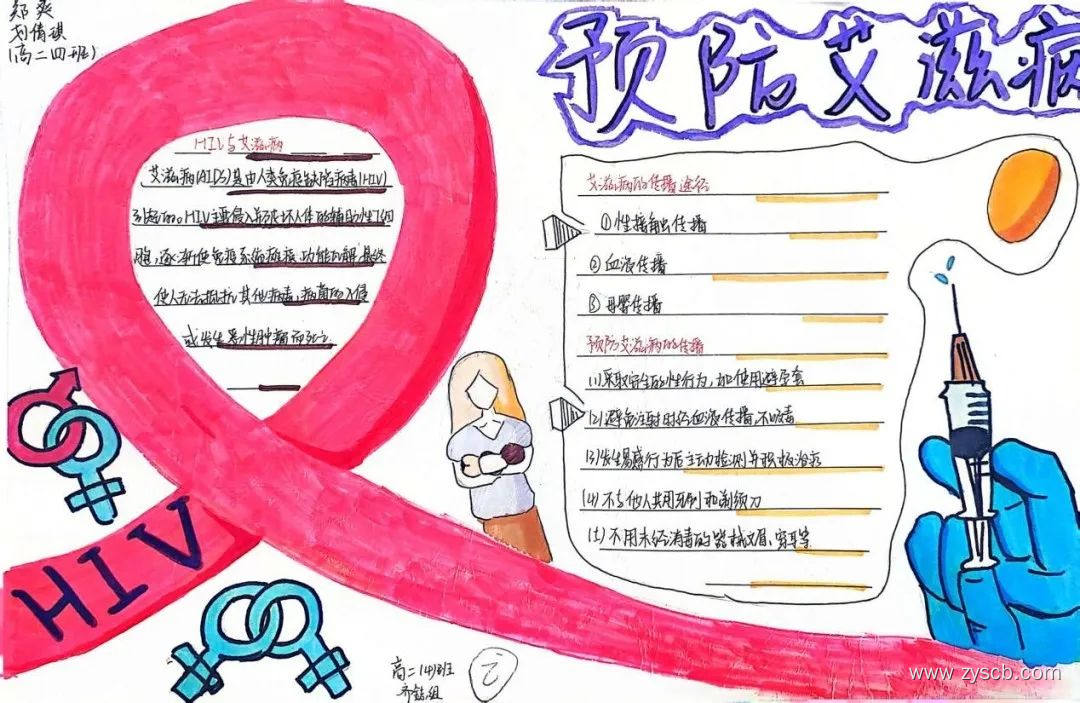 郑爽
刘倩琪
(高二四班)
预防艾滋病
HIV与艾滋病
艾滋病(AIDS)是由人类免疫缺陷病毒(HIV)
引起的。HIV主要侵入并破坏人体的辅助性T细
胞，逐渐使免疫系统瘫痪、功能瓦解，最终
使人无法抵抗其他病毒、病菌的入侵
或发生恶性肿瘤而死亡
艾滋病的传播途径
①性接触传播
②血液传播
③母婴传播
预防艾滋病的传播
(1)采取安全的性行为，如使用避孕套
(2)避免注射时经血液传播，不吸毒
(3)发生易感行为后主动检测并积极治疗
(4)不与他人共用牙刷和剃须刀
(5)不用未经消毒的器械纹眉、穿耳等
HIV
高二(4)班
乙
www.zyscb.com